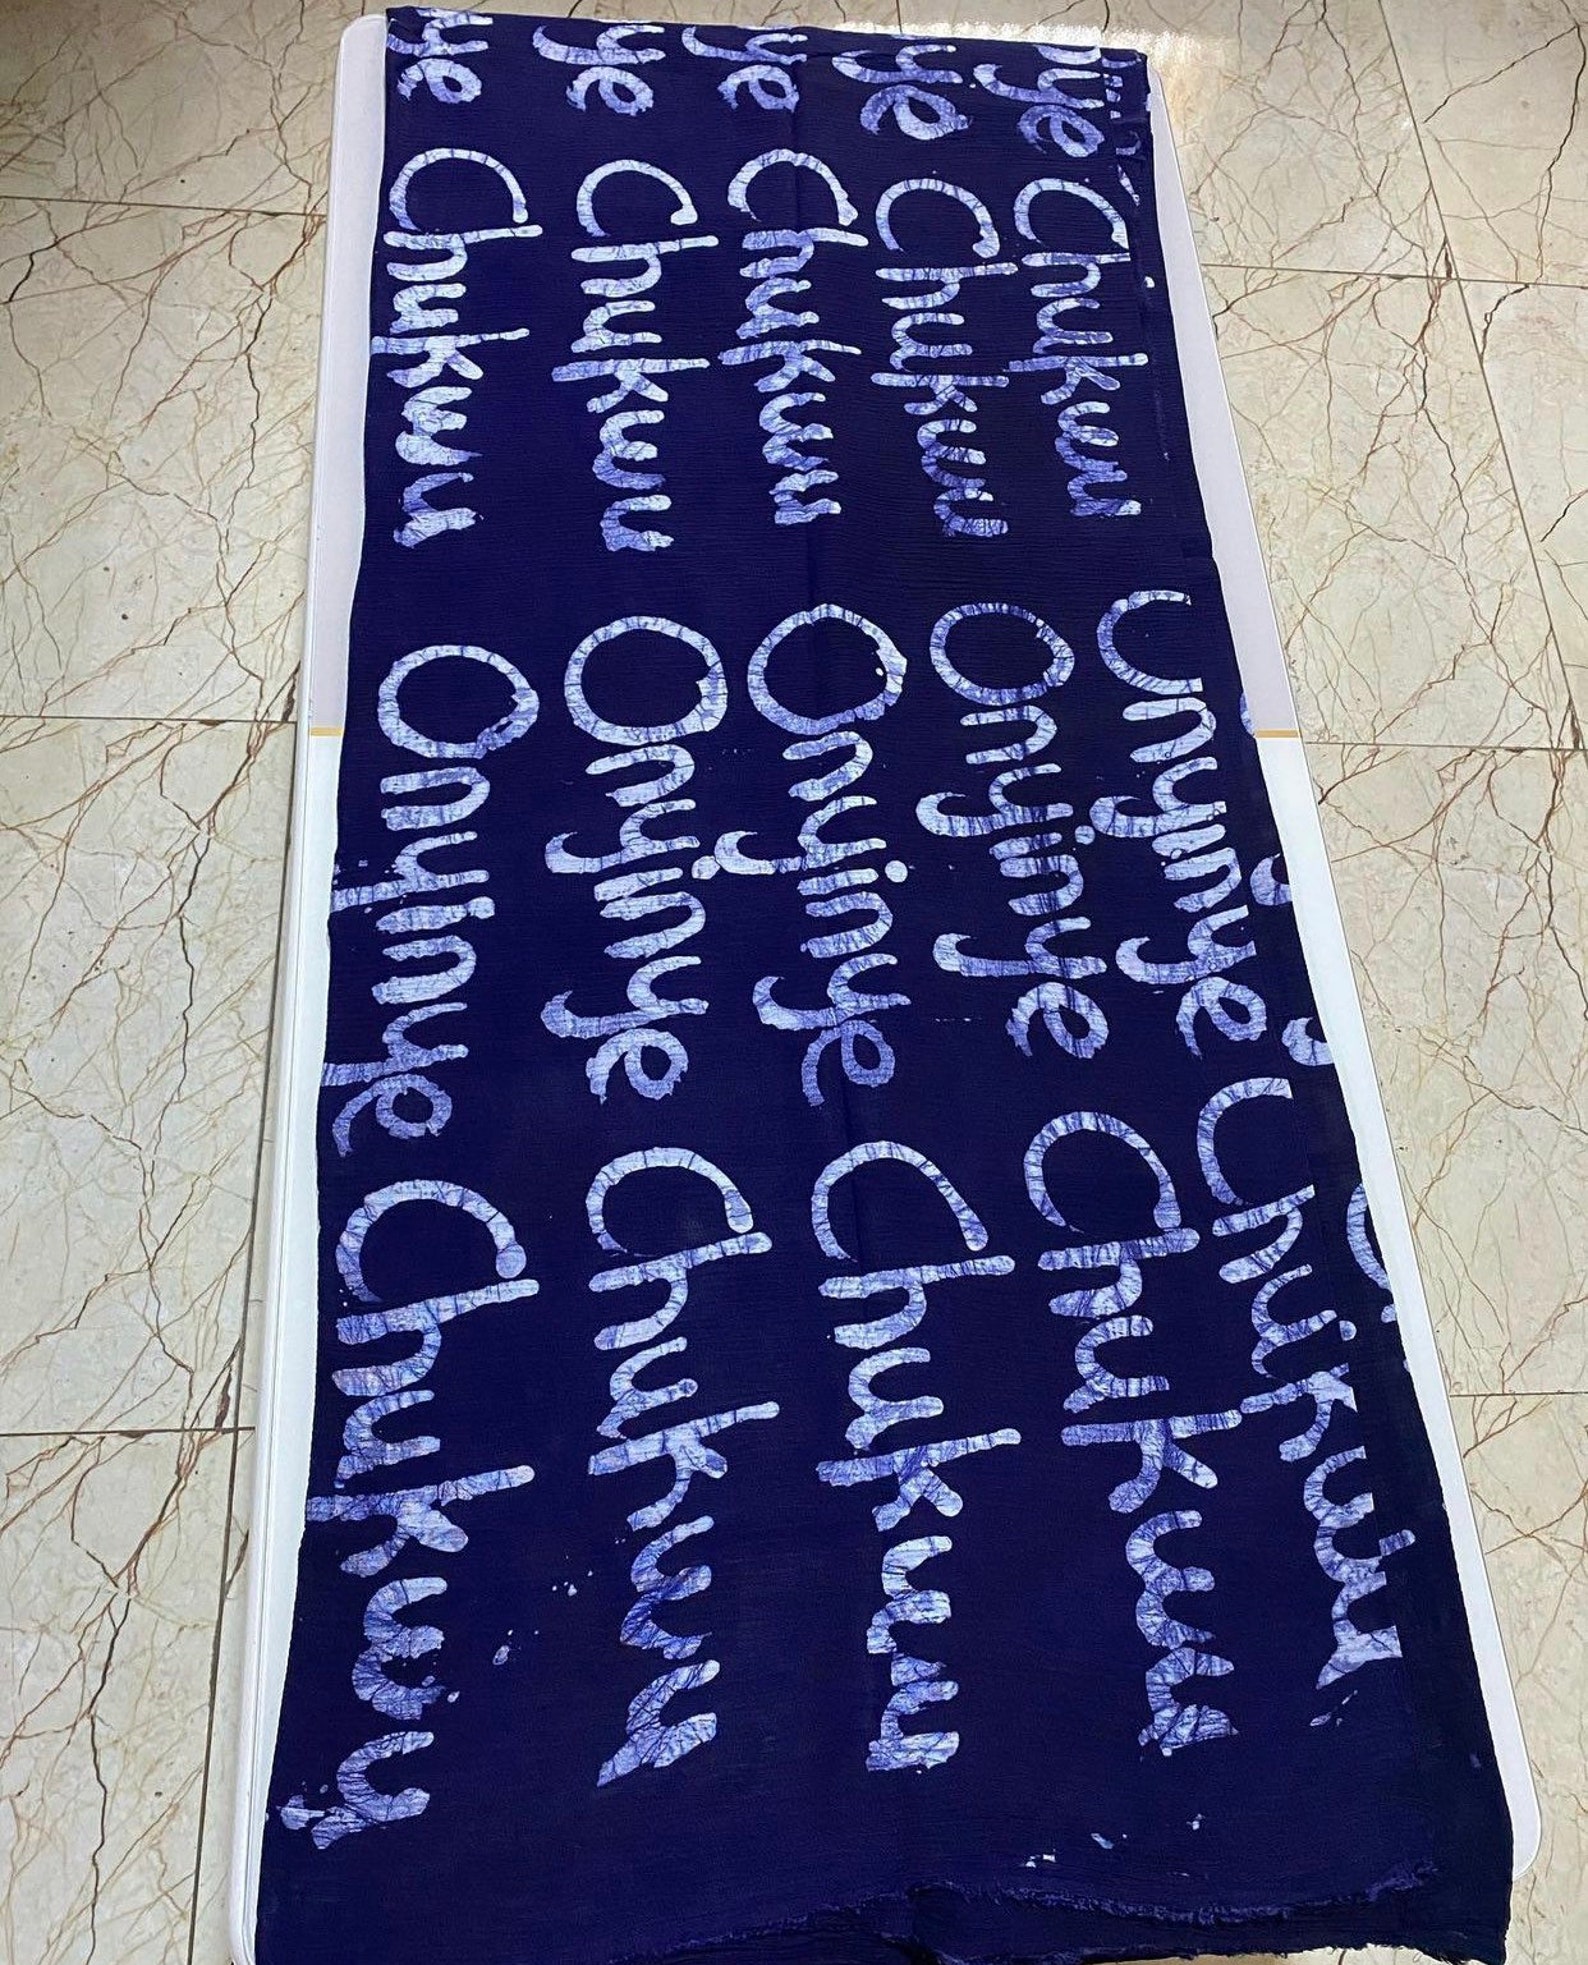 nye Chukwu Onyinye Chukwu
ye Chukwu Onyinye Chukwu
ye Chukwu Onyinye Chukwu
ye Chukwu Onyinye Chukwu
ye Chukwu Onyinye Chukwu